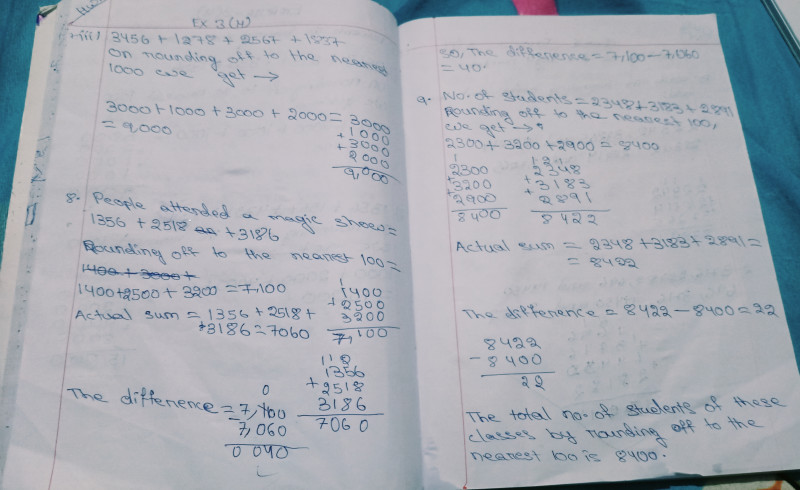 EX 3(H)
iii) 3456 + 1278 + 2567 + 1537
On rounding off to the nearest
1000 we get →
3000 + 1000 + 3000 + 2000 = 3000
= 9,000
+1000
+3000
2000
9,000
8. People attended a magic show =
1356 + 2518 + 3186
Rounding off to the nearest 100 =
1400 + 3000 +
1400 + 2500 + 3200 = 7,100
1
1400
+2500
3200
7,100
Actual sum = 1356 + 2518 +
+3186 = 7060
112
1356
+2518
3186
7060
The difference = 7,100
0
-7,060
0040
So, The difference = 7,100 - 7,060
= 40.
9. No. of students = 2348 + 3183 + 2891
Rounding off to the nearest 100,
we get →
2300 + 3200 + 2900 = 8400
1
2300
+3200
+2900
8400
1 2 1
2348
+3183
+2891
8422
Actual sum = 2348 + 3183 + 2891 =
= 8422
The difference = 8422 - 8400 = 22
8422
-8400
22
The total no. of students of these
classes by rounding off to the
nearest 100 is 8400.